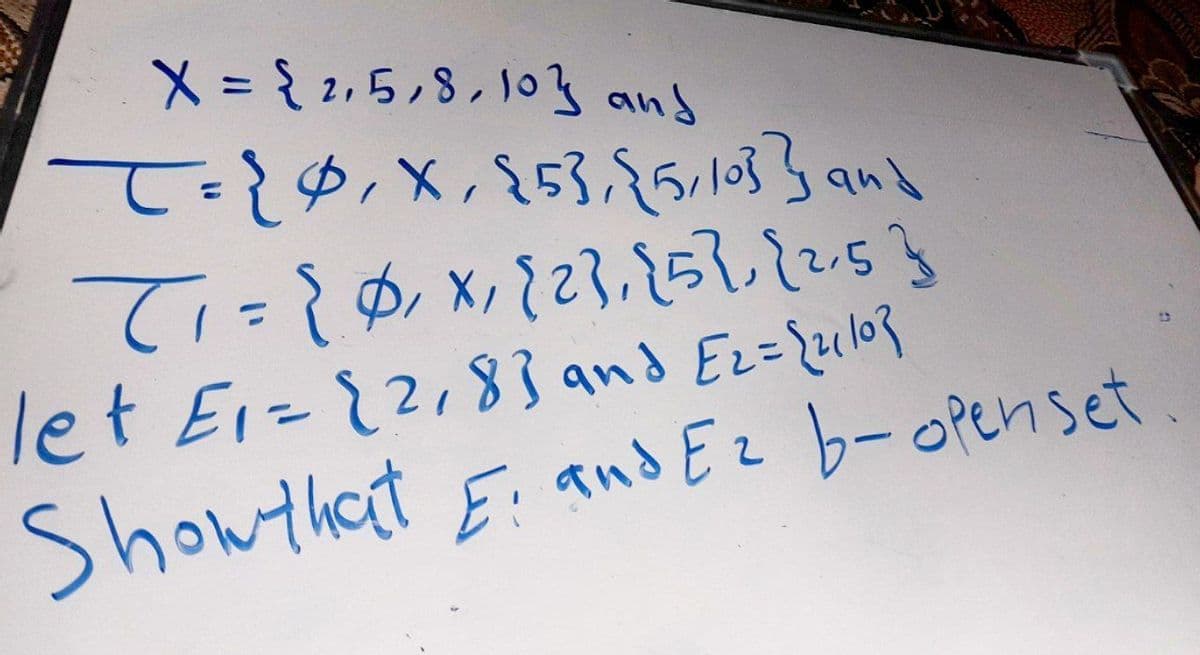 X = { 2,5,8,10} and
τ = { φ, X, {5}, {5,10} } and
τ1 = { φ, X, {2}, {5}, {2,5 }
let E1 = {2,8} and E2 = {2,10}
Show that E1 and E2 b-open set.